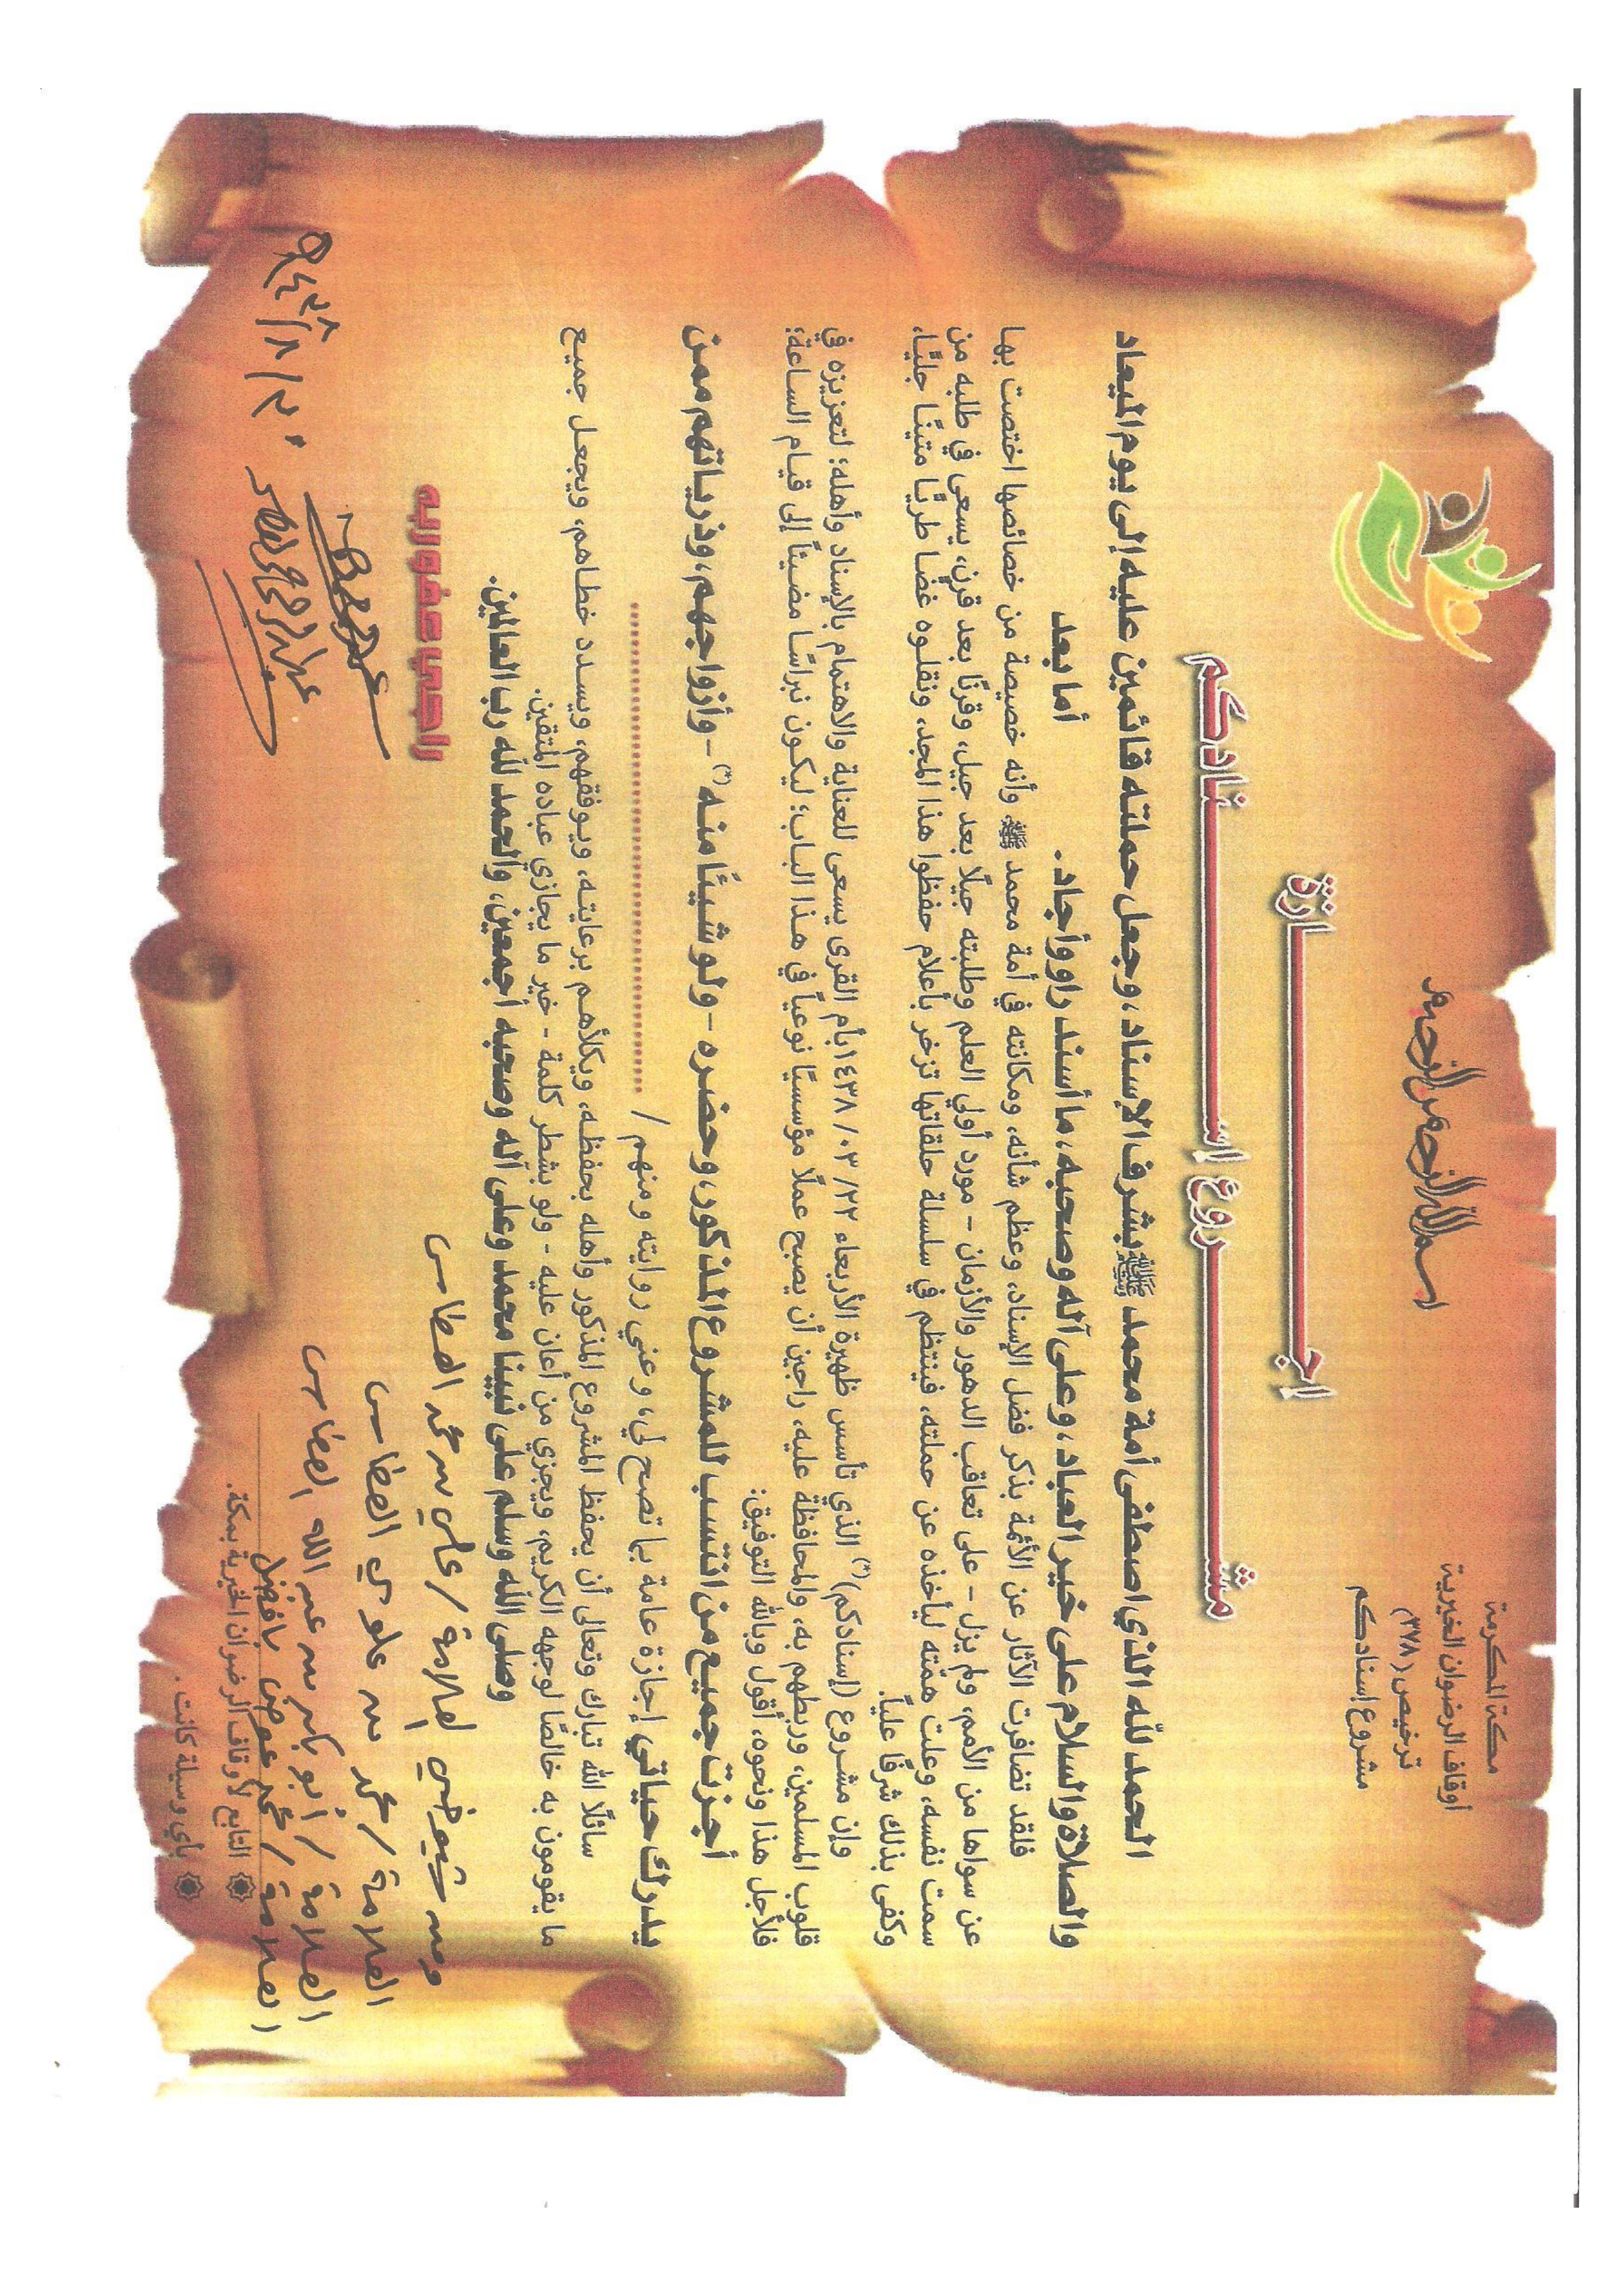 بسم الله الرحمن الرحيم
مكة المكرمة
أوقاف الرضوان الخيرية
ترخيص (٣٧٨)
مشروع إسنادكم
اجـــازة
مشـــروع إســـنادكم
الحمد لله الذي اصطفى أمة محمد ﷺ بشرف الإسناد، وجعل حملته قائمين عليه إلى يوم الميعاد
والصلاة والسلام على خير العباد، وعلى آله وصحبه، ما أسند راو وأجاد.
أما بعد
فلقد تضافرت الآثار عن الأئمة بذكر فضل الإسناد، وعظم شأنه، ومكانته في أمة محمد ﷺ وأنه خصيصة من خصائصها اختصت بها
عن سواها من الأمم، ولم يزل - على تعاقب الدهور والأزمان - مورد أولي العلم وطلبته جيلًا بعد جيل، وقرنًا بعد قرن، يسعى في طلبه من
سمت نفسه، وعلت همّته ليأخذه عن حملته، فينتظم في سلسلة حلقاتها تزخر بأعلام حفظوا هذا المجد، ونقلوه غضًا طريًا متينًا جليًا،
وكفى بذلك شرفًا عليًا.
وإن مشروع (إسنادكم)(*) الذي تأسس ظهيرة الأربعاء ٢٢/ ٠٣/ ١٤٣٨ بأم القرى يسعى للعناية والاهتمام بالإسناد وأهله؛ لتعزيزه في
قلوب المسلمين، وربطهم به، والمحافظة عليه، راجين أن يصبح عملًا مؤسسيًا نوعياً في هذا الباب؛ ليكون نبراسًا مضيئاً إلى قيام الساعة؛
فلأجل هذا ونحوه، أقول وبالله التوفيق:
أجزت جميع من انتسب للمشروع المذكور، وحضره - ولو شيئًا منه (*) - وأزواجهم، وذرياتهم ممن
يدرك حياتي إجازة عامة بما تصح لي، وعني روايته ومنهم / ..........................
سائلًا الله تبارك وتعالى أن يحفظ المشروع المذكور وأهله بحفظه، ويكلأهم برعايته، ويوفقهم، ويسدد خطاهم، ويجعل جميع
ما يقومون به خالصًا لوجهه الكريم، ويجزي من أعان عليه - ولو بشطر كلمة - خير ما يجازي عباده المتقين.
وصلى الله وسلم على نبينا محمد وعلى آله وصحبه أجمعين، والحمد لله رب العالمين.
راجي عفو ربه
العلامة / علي بن محمد العطاس
العلامة / محمد بن علوي العطاس
العلامة / أبو بكر بن عبد الله العطاس
العلامة / محمد عوض بافضل
التابع لأوقاف الرضوان الخيرية بمكة.
بأي وسيلة كانت.